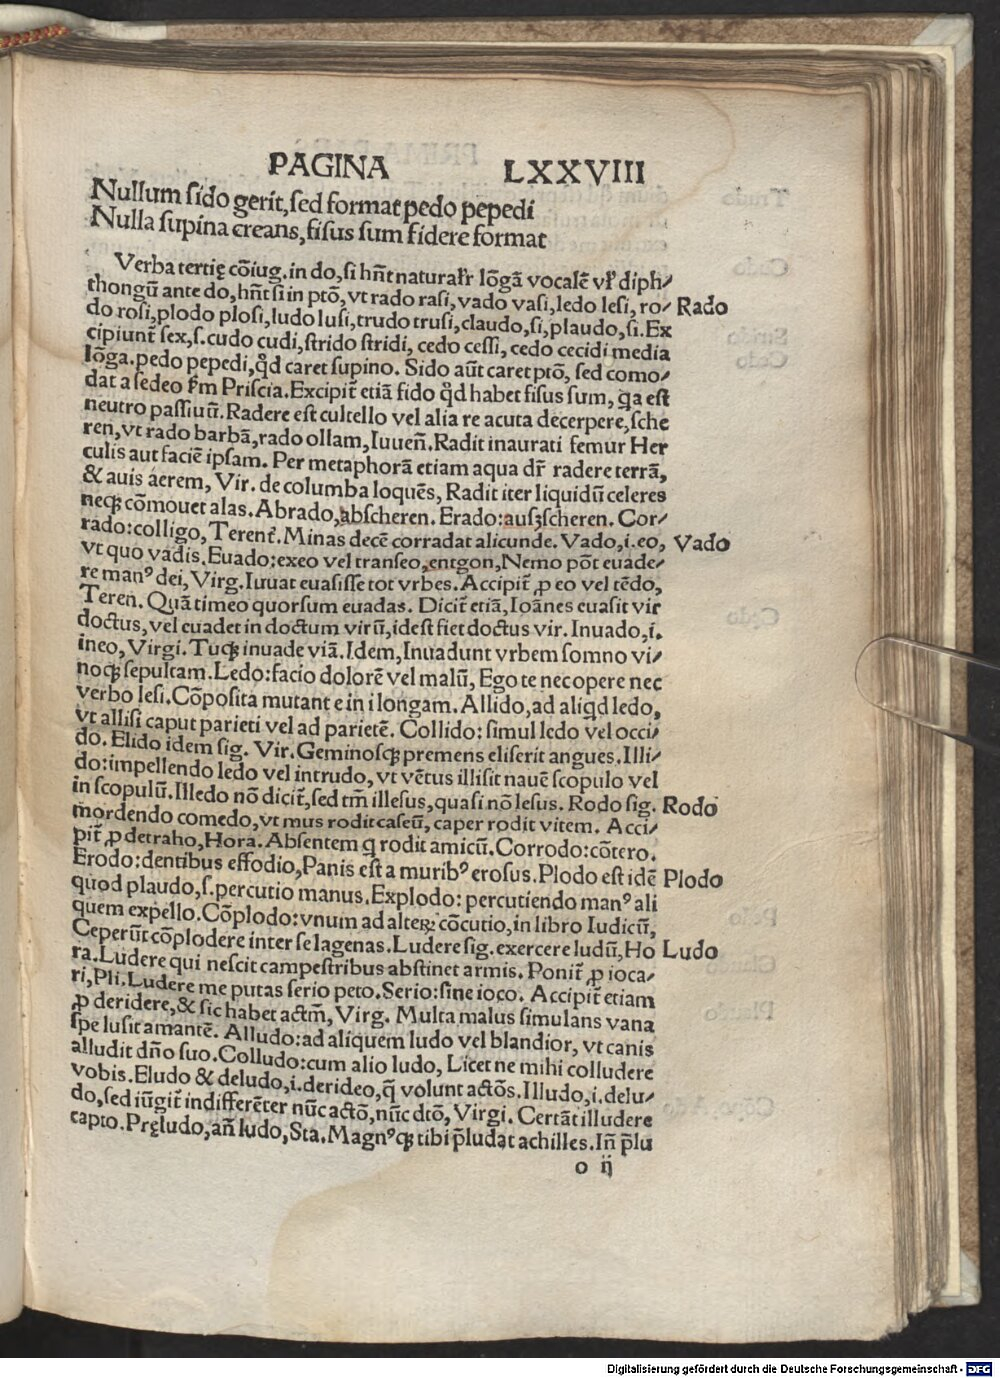 PAGINA LXXVIII
Nullum sido gerit, sed format pedo pepedi
Nulla supina creans, fisus sum fidere format
Verba tertię cõiug. in do, si hñt naturalr̃ lõgã vocalẽ vl̃ diph⸗
thongũ ante do, hñt si in ptõ, vt rado rasi, vado vasi, ledo lesi, ro⸗ Rado
do rosi, plodo plosi, ludo lusi, trudo trusi, claudo, si, plaudo, si. Ex
cipiunt̃ sex, s. cudo cudi, strido stridi, cedo cessi, cedo cecidi media
lõga. pedo pepedi, qđ caret supino. Sido aũt caret ptõ, sed como⸗
dat a sedeo fm Priscia. Excipit̃ etiã fido qđ habet fisus sum, q̃a est
neutro passiuũ. Radere est cultello vel alia re acuta decerpere, sche
ren, vt rado barbã, rado ollam, Iuueñ. Radit inaurati femur Her
culis aut faciẽ ipsam. Per metaphorã etiam aqua dr̃ radere terrã,
& auis áerem, Vir. de columba loquẽs, Radit iter liquidũ celeres
neqꝫ cõmouet alas. Abrado, abscheren. Erado: ausꝫscheren. Cor⸗
rado: colligo, Terent̃. Minas decẽ corradat alicunde. Vado, i. eo, Vado
vt quo vadis. Euado: exeo vel transeo, entgon, Nemo põt euade⸗
re manꝰ dei, Virg. Iuuat euasisse tot vrbes. Accipit̃ ꝓ eo vel tẽdo,
Teren. Quã timeo quorsum euadas. Dicit̃ etiã, Ioãnes euasit vir
doctus, vel euadet in doctum virũ, idest fiet doctus vir. Inuado, i.
ineo, Virgi. Tuqꝫ inuade viã. Idem, Inuadunt vrbem somno vi⸗
noqꝫ sepultam. Ledo: facio dolorẽ vel malũ, Ego te nec opere nec
verbo lesi. Cõposita mutant e in i longam. Allido, ad aliqd ledo,
vt allisi caput parieti vel ad parietẽ. Collido: simul ledo vel occi
do. Elido idem sig. Vir. Geminosqꝫ premens eliserit angues. Illi⸗
do: impellendo ledo vel intrudo, vt vẽtus illisit nauẽ scopulo vel
in scopulũ. Illedo nõ dicit̃, sed tm̃ illesus, quasi nõ lesus. Rodo sig. Rodo
mordendo comedo, vt mus rodit caseũ, caper rodit vitem. Acci⸗
pit̃ ꝓ detraho, Hora. Absentem q rodit amicũ. Corrodo: cõtero.
Erodo: dentibus effodio, Panis est a muribꝰ erosus. Plodo est idẽ Plodo
quod plaudo, s. percutio manus. Explodo: percutiendo manꝰ ali
quem expello. Cõplodo: vnum ad alteꝝ cõcutio, in libro Iudicũ,
Ceperũt cõplodere inter se lagenas. Ludere sig. exercere ludũ, Ho Ludo
ra. Ludere qui nescit campestribus abstinet armis. Ponit̃ ꝓ ioca⸗
ri, Pli. Ludere me putas serio peto. Serio: sine ioco. Accipit̃ etiam
ꝓ deridere, & sic habet actm̃, Virg. Multa malus simulans vana
spe lusit amantẽ. Alludo: ad aliquem ludo vel blandior, vt canis
alludit dño suo. Colludo: cum alio ludo, Licet ne mihi colludere
vobis. Eludo & deludo, i. derideo, q̃ volunt actõs. Illudo, i. delu⸗
do, sed iũgit̃ indifferẽter nũc actõ, nũc dtõ, Virgi. Certãt illudere
capto. Pręludo, añ ludo, Sta. Magnꝰqꝫ tibi p̃ludat achilles. Iñ p̃lu
o ij
Digitalisierung gefördert durch die Deutsche Forschungsgemeinschaft - DFG